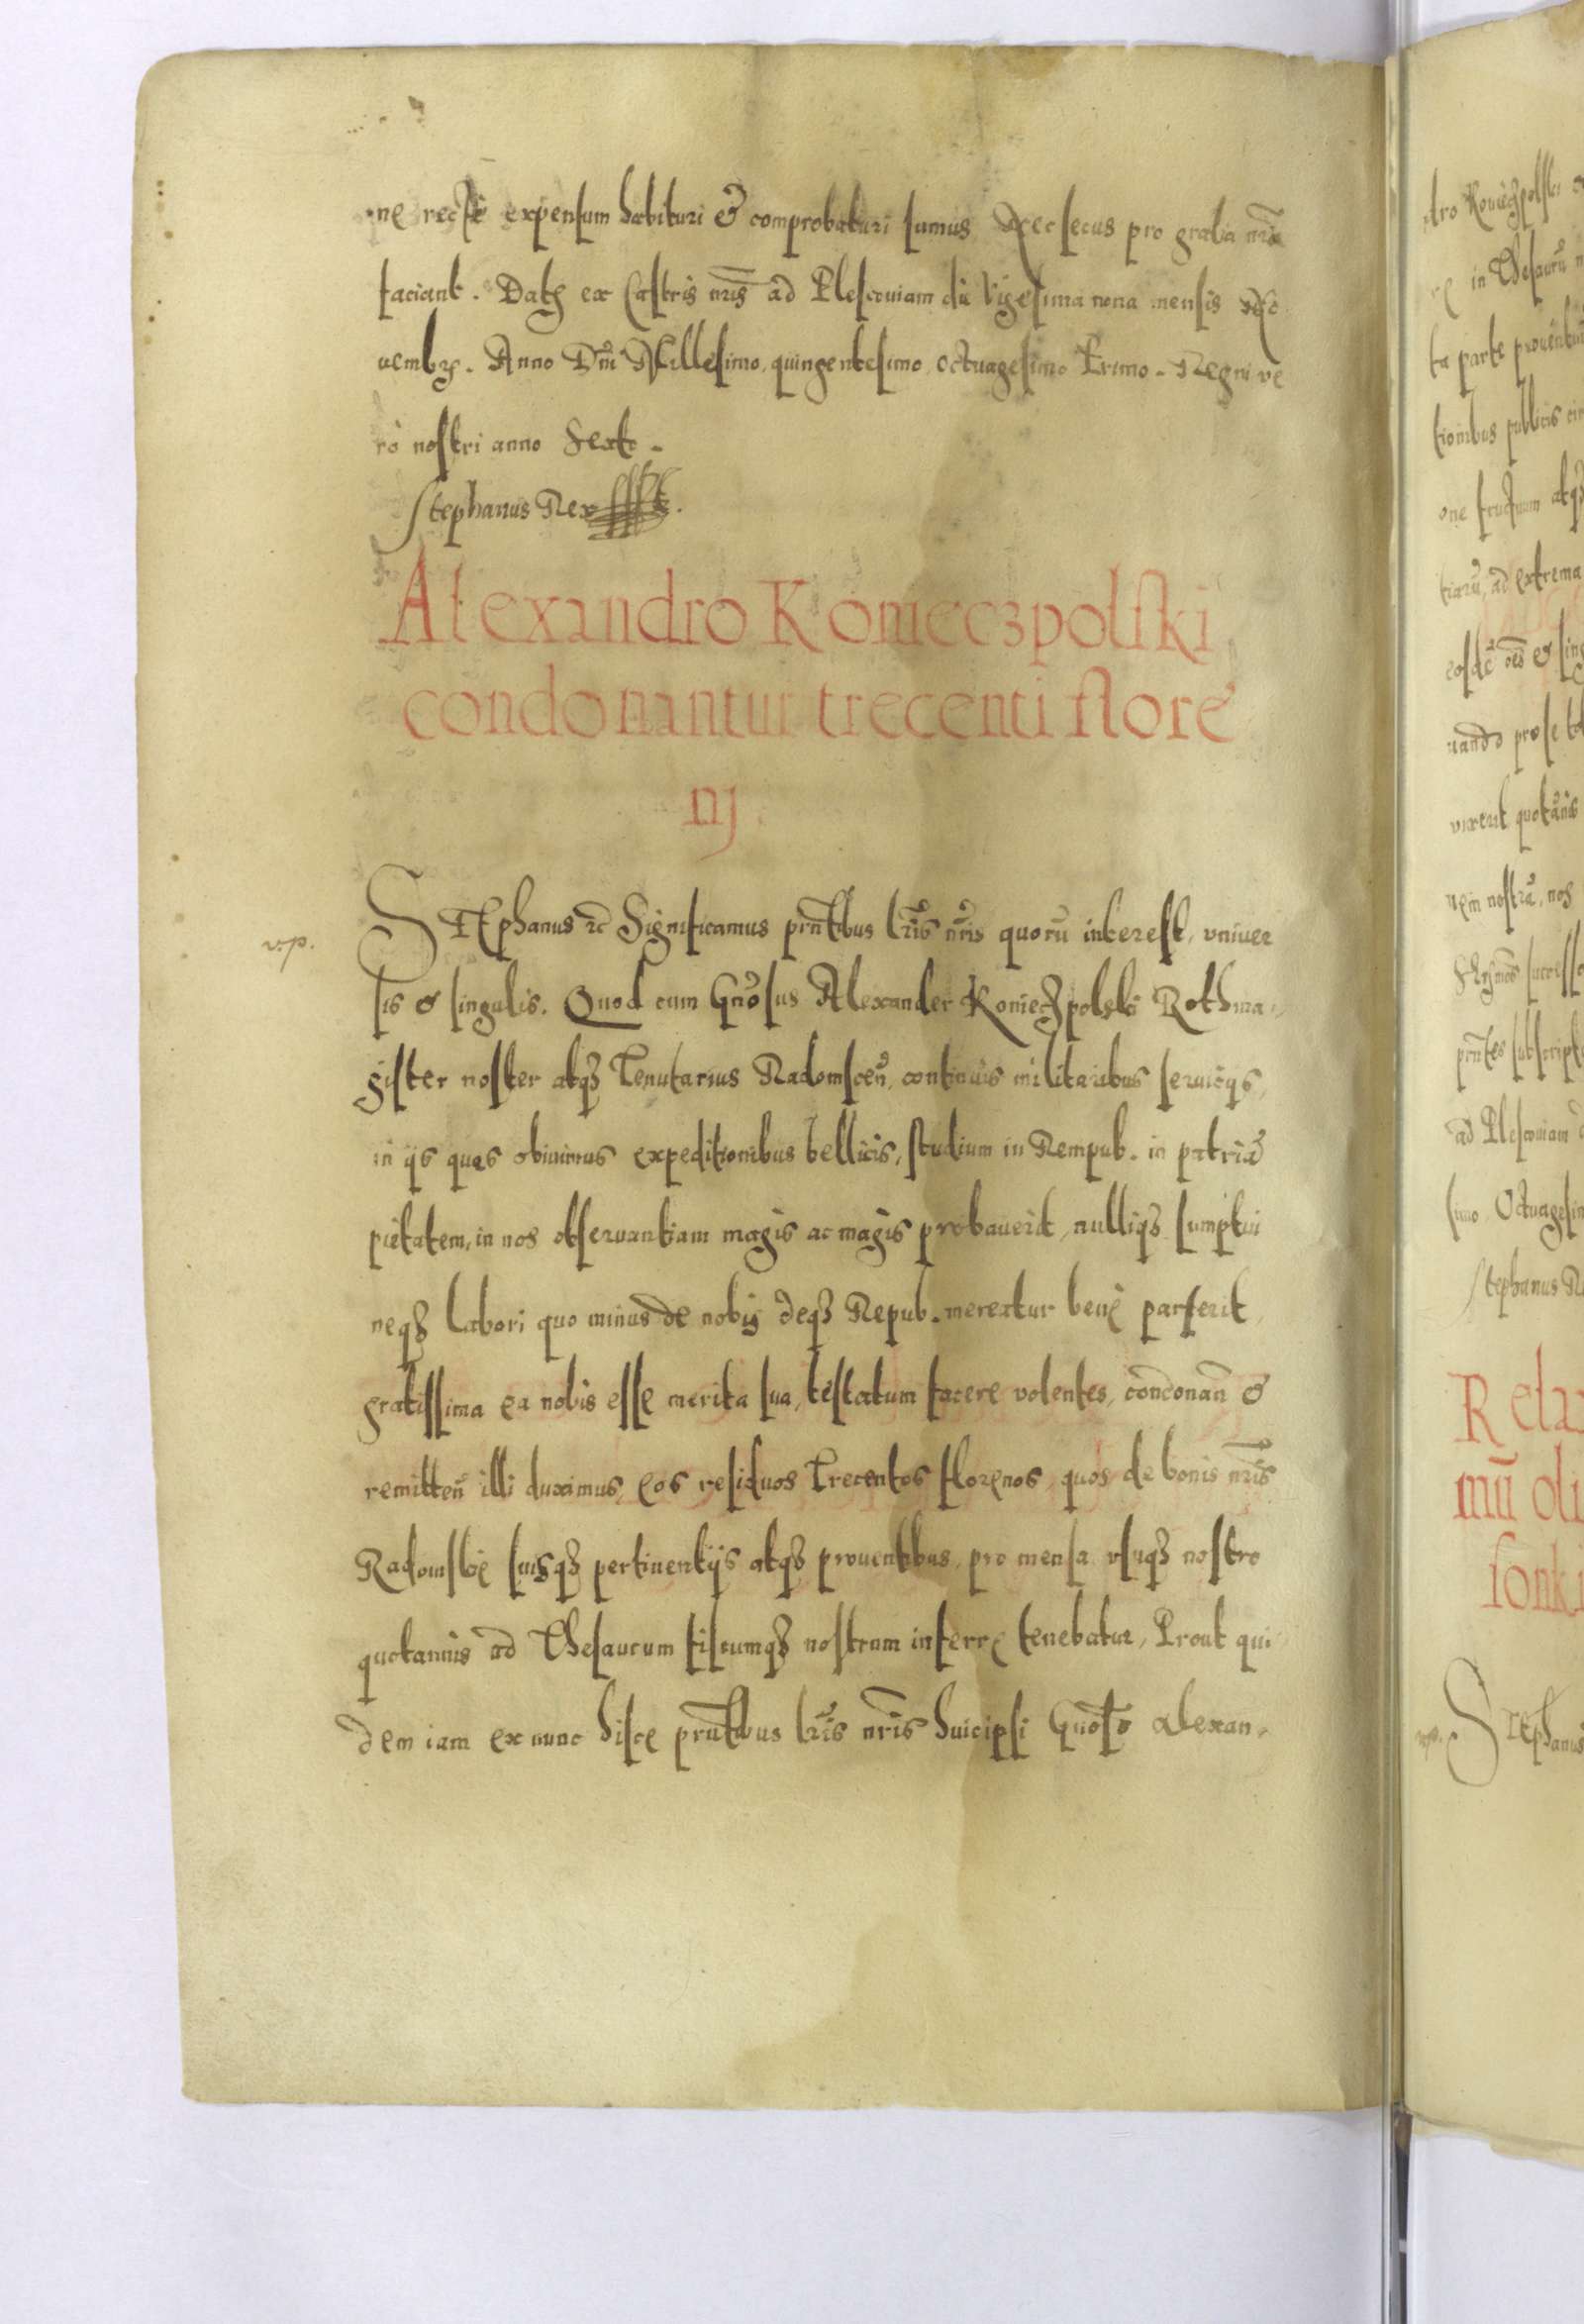 ne recte expensum habituri & comprobaturi sumus Nec secus pro gratia nr̃a
faciant. Datę ex Castris nr̃is ad Plescouiam die Vigesima nona mensis No
uembr. Anno Dñi Millesimo, quingentesimo octuagesimo Primo. Regni ve
rò nostri anno Sexto.
Stephanus Rex
Alexandro Konieczpolski
condonantur trecenti flore
nj.
v.p.
STEphanus rc̃ Significamus prñtibus lr̃is nr̃is quorũ interest, vniuer
sis & singulis. Quod cum Gnõsus Alexander Konieczpolski Rothma-
gister noster atqз Tenutarius Radomsceñ, continuis militaribus seruicijs,
in ijs quas obiuimus expeditionibus bellicis, studium in Rempub. in patriã
pietatem, in nos obseruantiam magis ac magis probauerit, nulliqз sumptui
neqз labori quo minus de nobis deqз Repub. mereatur benè parserit,
gratissima ea nobis esse merita sua, testatum facere volentes, condonañ &
remitteñ illi duximus, eos residuos Trecentos florenos, quos de bonis nr̃is
Radomskie suisqз pertinentijs atqз prouentibus, pro mensa usuqз nostro
quotannis ad Thesaurum fiscumqз nostrum inferre tenebatur, Prout qui
dem iam ex nunc hisce prñtibus lr̃is nr̃is huic ipsi Gnõso Alexan-
dro Konieczpolski
in Thesaurũ
ta parte prouentuũ
tionibus publicis
one fructuum atqз
tiarũ, ad extrema
eosdẽ oẽs & sing
uando pro se
vixerit quotannis
nem nostrã, nos
Serẽmos successo
prñtes subscript
ad Plescouiam
simo Octuagesim
Stephanus R
Rela
mũ oli
sonki
v.p.
STEphanus